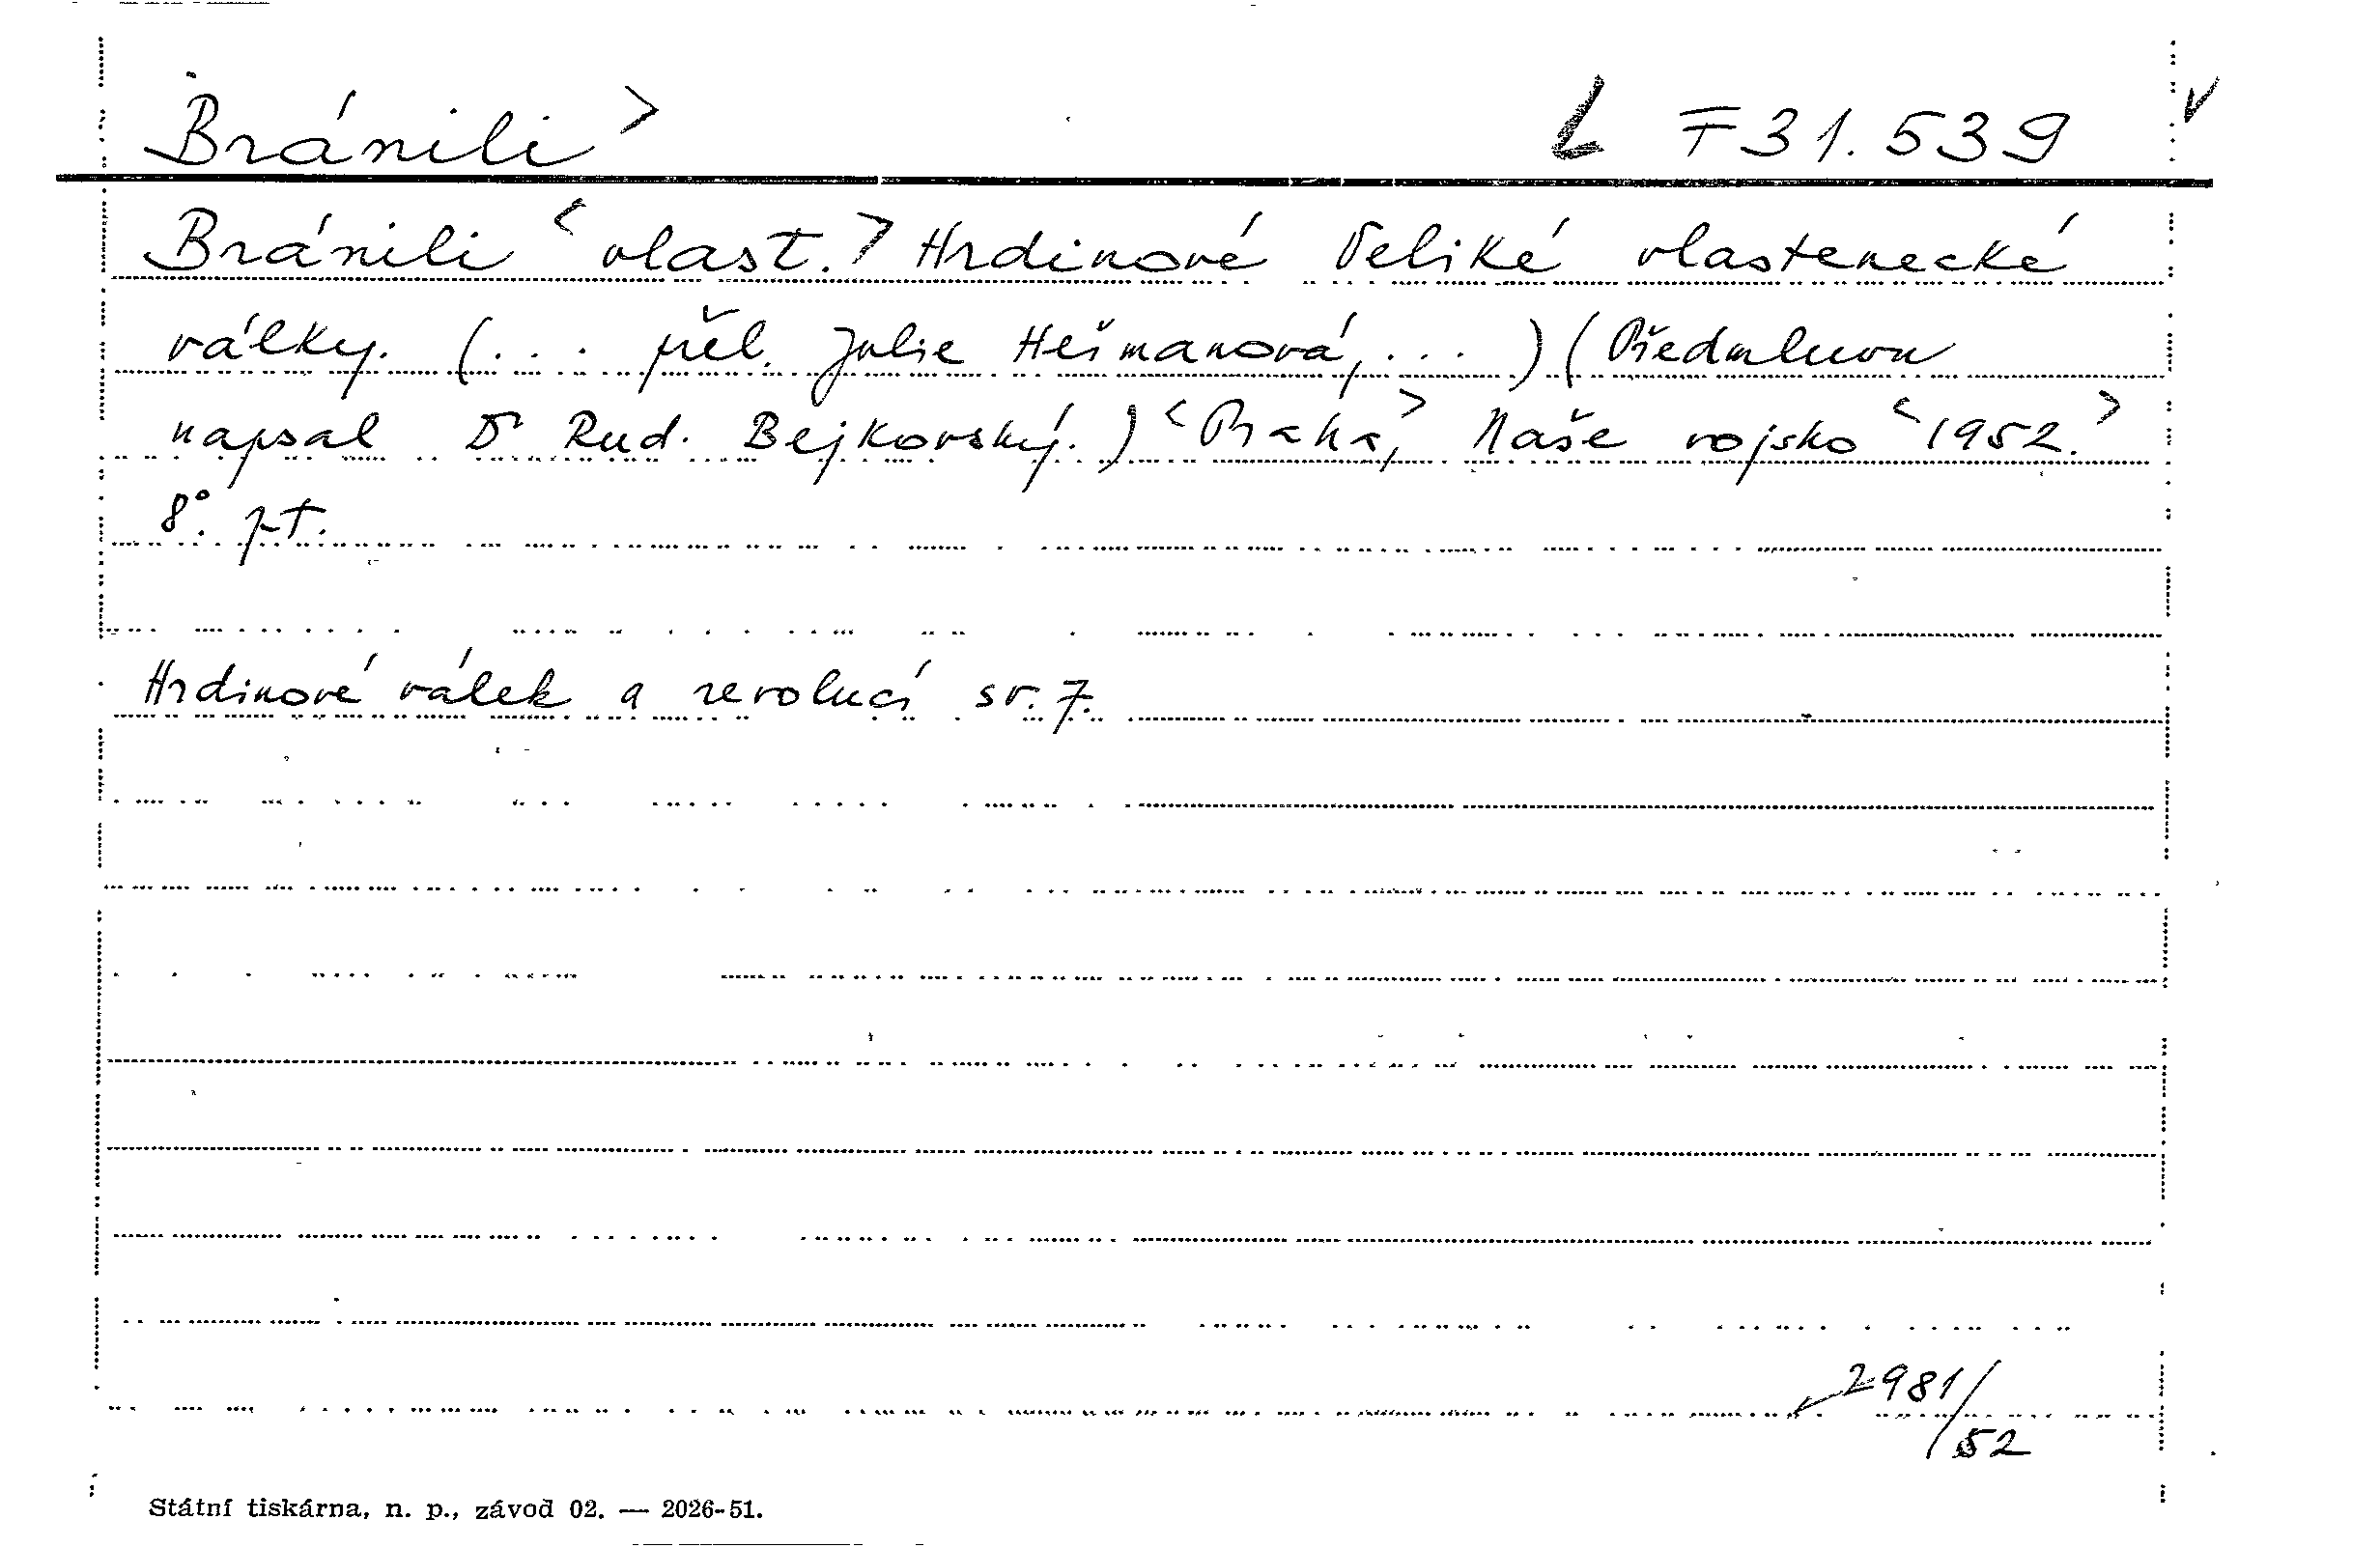 Bránili > L F 31.539 v
Bránili < vlast. > Hrdinové Veliké vlastenecké
války. (... přel. Julie Heřmanová, ...) (Předmluvu
napsal Dr Rud. Bejkovský.) < Praha, > Naše vojsko < 1952. >
8°. pt.
Hrdinové válek a revolucí sv. 7.
2981/
52
Státní tiskárna, n. p., závod 02. — 2026-51.